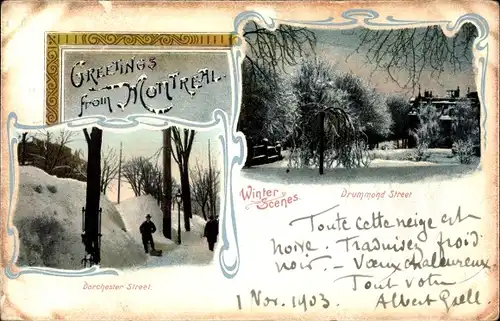 GREETINGS
from MONTREAL.
Winter
Scenes.
Drummond Street
Dorchester Street.
Toute cette neige est
noire. Traduisez froid
noir. – Vœux chaleureux.
Tout votre
Albert
1 Nov. 1903